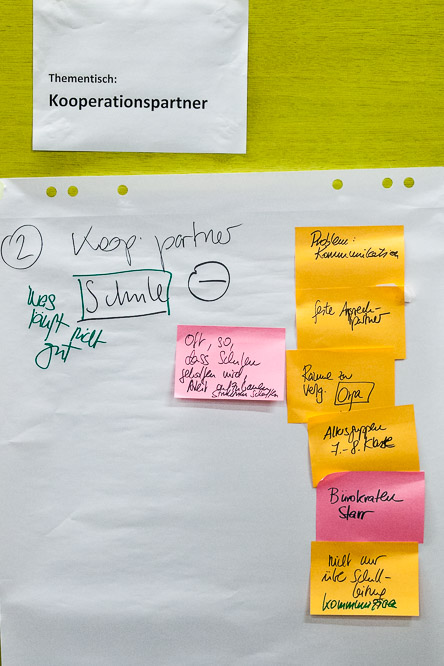 Thementisch:
Kooperationspartner
2 Koop. partner
Schule –
was
läuft nicht
gut
Oft, so,
dass Schulen
geholfen wird
Arbeit
Strukturen schaffen
Problem:
Kommunikation
feste Ansprech-
partner
Räume zu
Verf. Orga
Altersgruppen
7.-8. Klasse
Bürokraten
Starr
nicht nur
über Schul-
leitung
kommunizieren